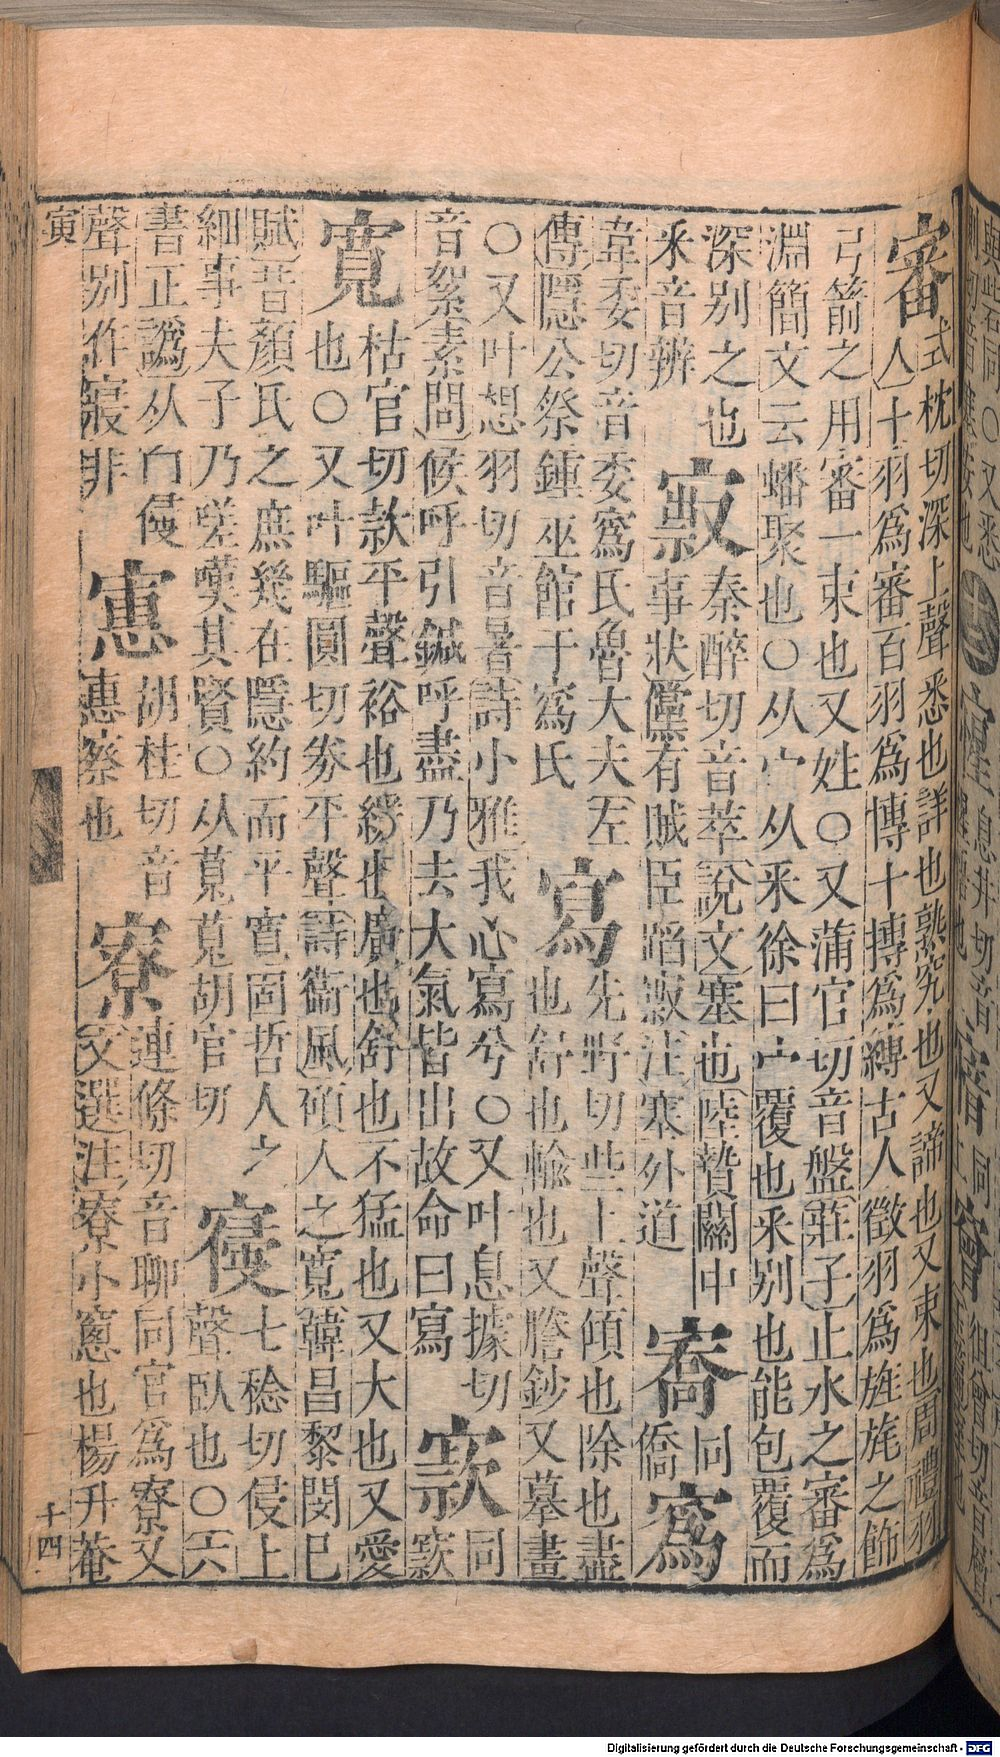 審
式枕切深上聲悉也詳也熟究也又諦也又束也周禮羽
人十羽爲審百羽爲博十搏爲縛古人徵羽爲旌旄之飾
弓箭之用審一束也又姓○又蒲官切音盤莊子止水之審爲
淵簡文云蟠聚也○从宀从釆徐曰宀覆也釆别也能包覆而
深别之也
釆音辨
㝮
秦醉切音萃說文塞也陸贄關中
事狀儻有賊臣陷㝮注寒外道
㝯
同
僑
寪
韋委切音委寪氏魯大夫左
傳隱公祭鍾巫館于寪氏
寫
先野切些上聲傾也除也盡
也舒也輸也又謄鈔又摹畫
○又叶想羽切音暑詩小雅我心寫兮○又叶息據切
音絮素問候呼引鍼呼盡乃去大氣皆出故命曰寫
同
窾
寬
枯官切款平聲裕也緩也廣也舒也不猛也又大也又愛
也○又叶驅圓切劵平聲詩衞風碩人之寬韓昌黎閔已
賦昔顏氏之庶幾在隱約而平寬固哲人之
細事夫子乃嗟嘆其賢○从莧莧胡官切
㝲
七稔切侵上
聲臥也○六
書正譌从宀侵
聲别作寢非
寭
胡桂切音
惠察也
寮
連條切音聊同官爲寮又
文選注寮小窻也楊升菴
寅
十四
Digitalisierung gefördert durch die Deutsche Forschungsgemeinschaft - DFG